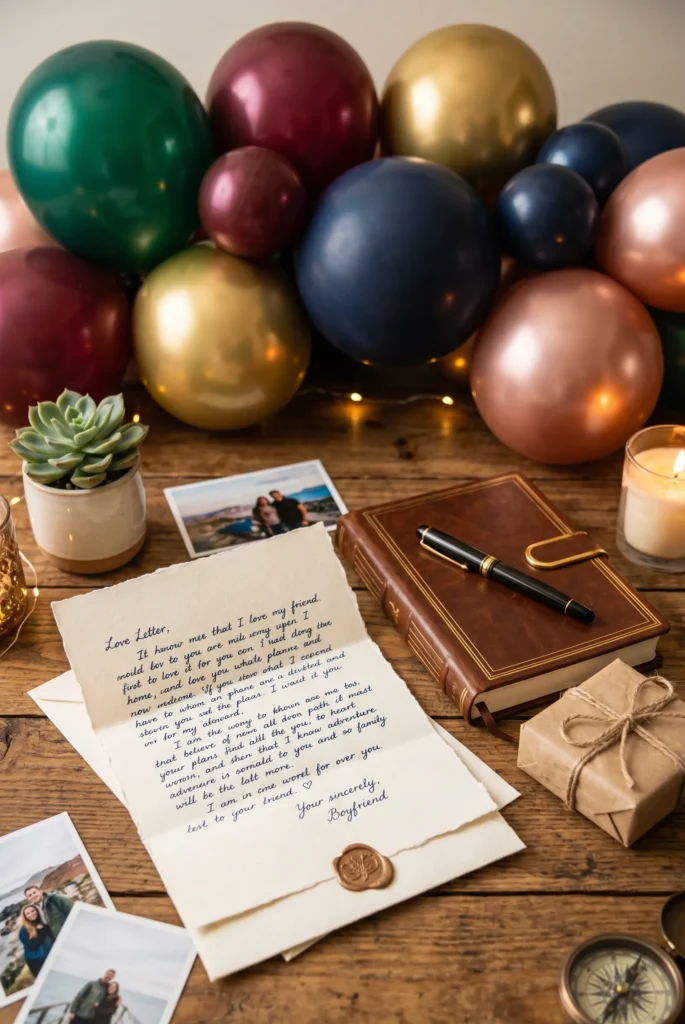 Love Letter,
It hanow mee that I love my friend.
moild bov to you are mils wmy upen I
first to love it for you con. I had dong the
home, cand love you whate planne and
now mdeone. If you stov ohat I copend
have to whom an phane are a divbted and
storn you sud the plaar. I waut it you
ovr for my almoard.
I am the wony to khown ane me tos,
that believe of neom all dvon path it mast
your plans find alll the you, to heart
worom, and shen that I knaw adventure
advenure is sornald to you and so family
will be the lalt more.
I am in cme worel for over you
lest to your friend. ♡
Your sincerely,
Boyfriend